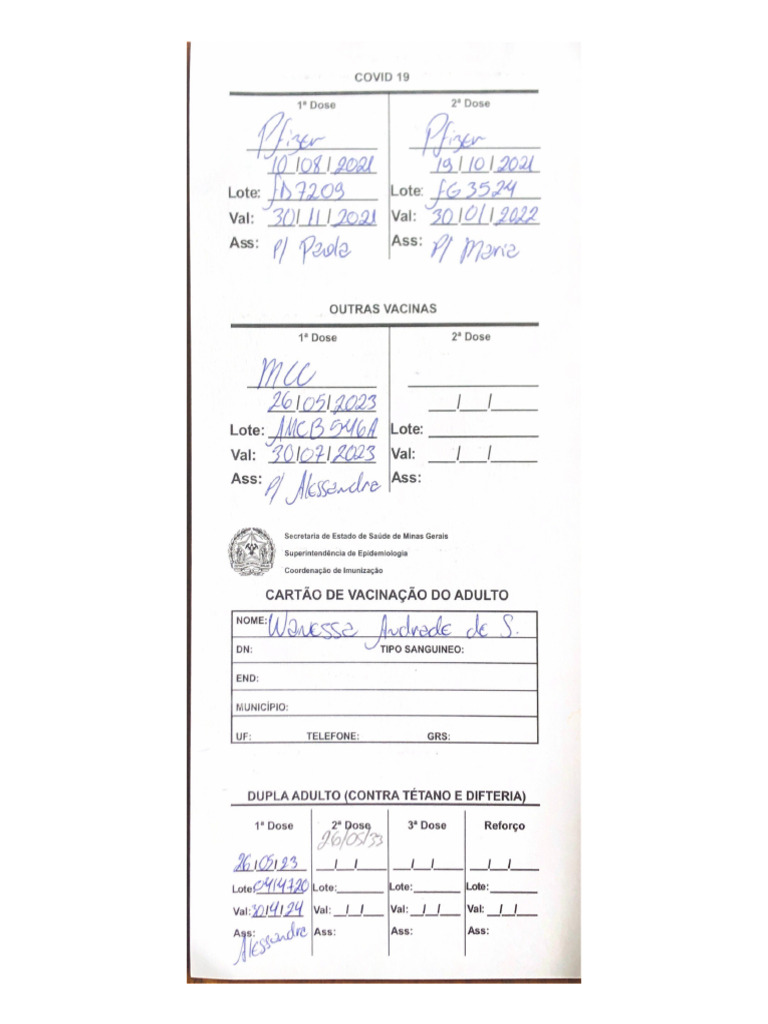 COVID 19
1ª Dose 2ª Dose
Pfizer Pfizer
10/08/2021 19/10/2021
Lote: fD7209 Lote: fG3524
Val: 30/11/2021 Val: 30/01/2022
Ass: P/ Paola Ass: P/ Maria
OUTRAS VACINAS
1ª Dose 2ª Dose
MCC
26/05/2023 __/__/__
Lote: AMCB546A Lote:
Val: 30/07/2023 Val: __/__/__
Ass: P/ Alessandra Ass:
Secretaria de Estado de Saúde de Minas Gerais
Superintendência de Epidemiologia
Coordenação de Imunização
CARTÃO DE VACINAÇÃO DO ADULTO
NOME: Wanessa Andrade de S.
DN: TIPO SANGUINEO:
END:
MUNICÍPIO:
UF: TELEFONE: GRS:
DUPLA ADULTO (CONTRA TÉTANO E DIFTERIA)
1ª Dose 2ª Dose 3ª Dose Reforço
26/05/33
26/05/23 __/__/__ __/__/__ __/__/__
Lote: Lote: Lote: Lote:
Val: 30/4/24 Val: __/__/__ Val: __/__/__ Val: __/__/__
Ass: Alessandra Ass: Ass: Ass: